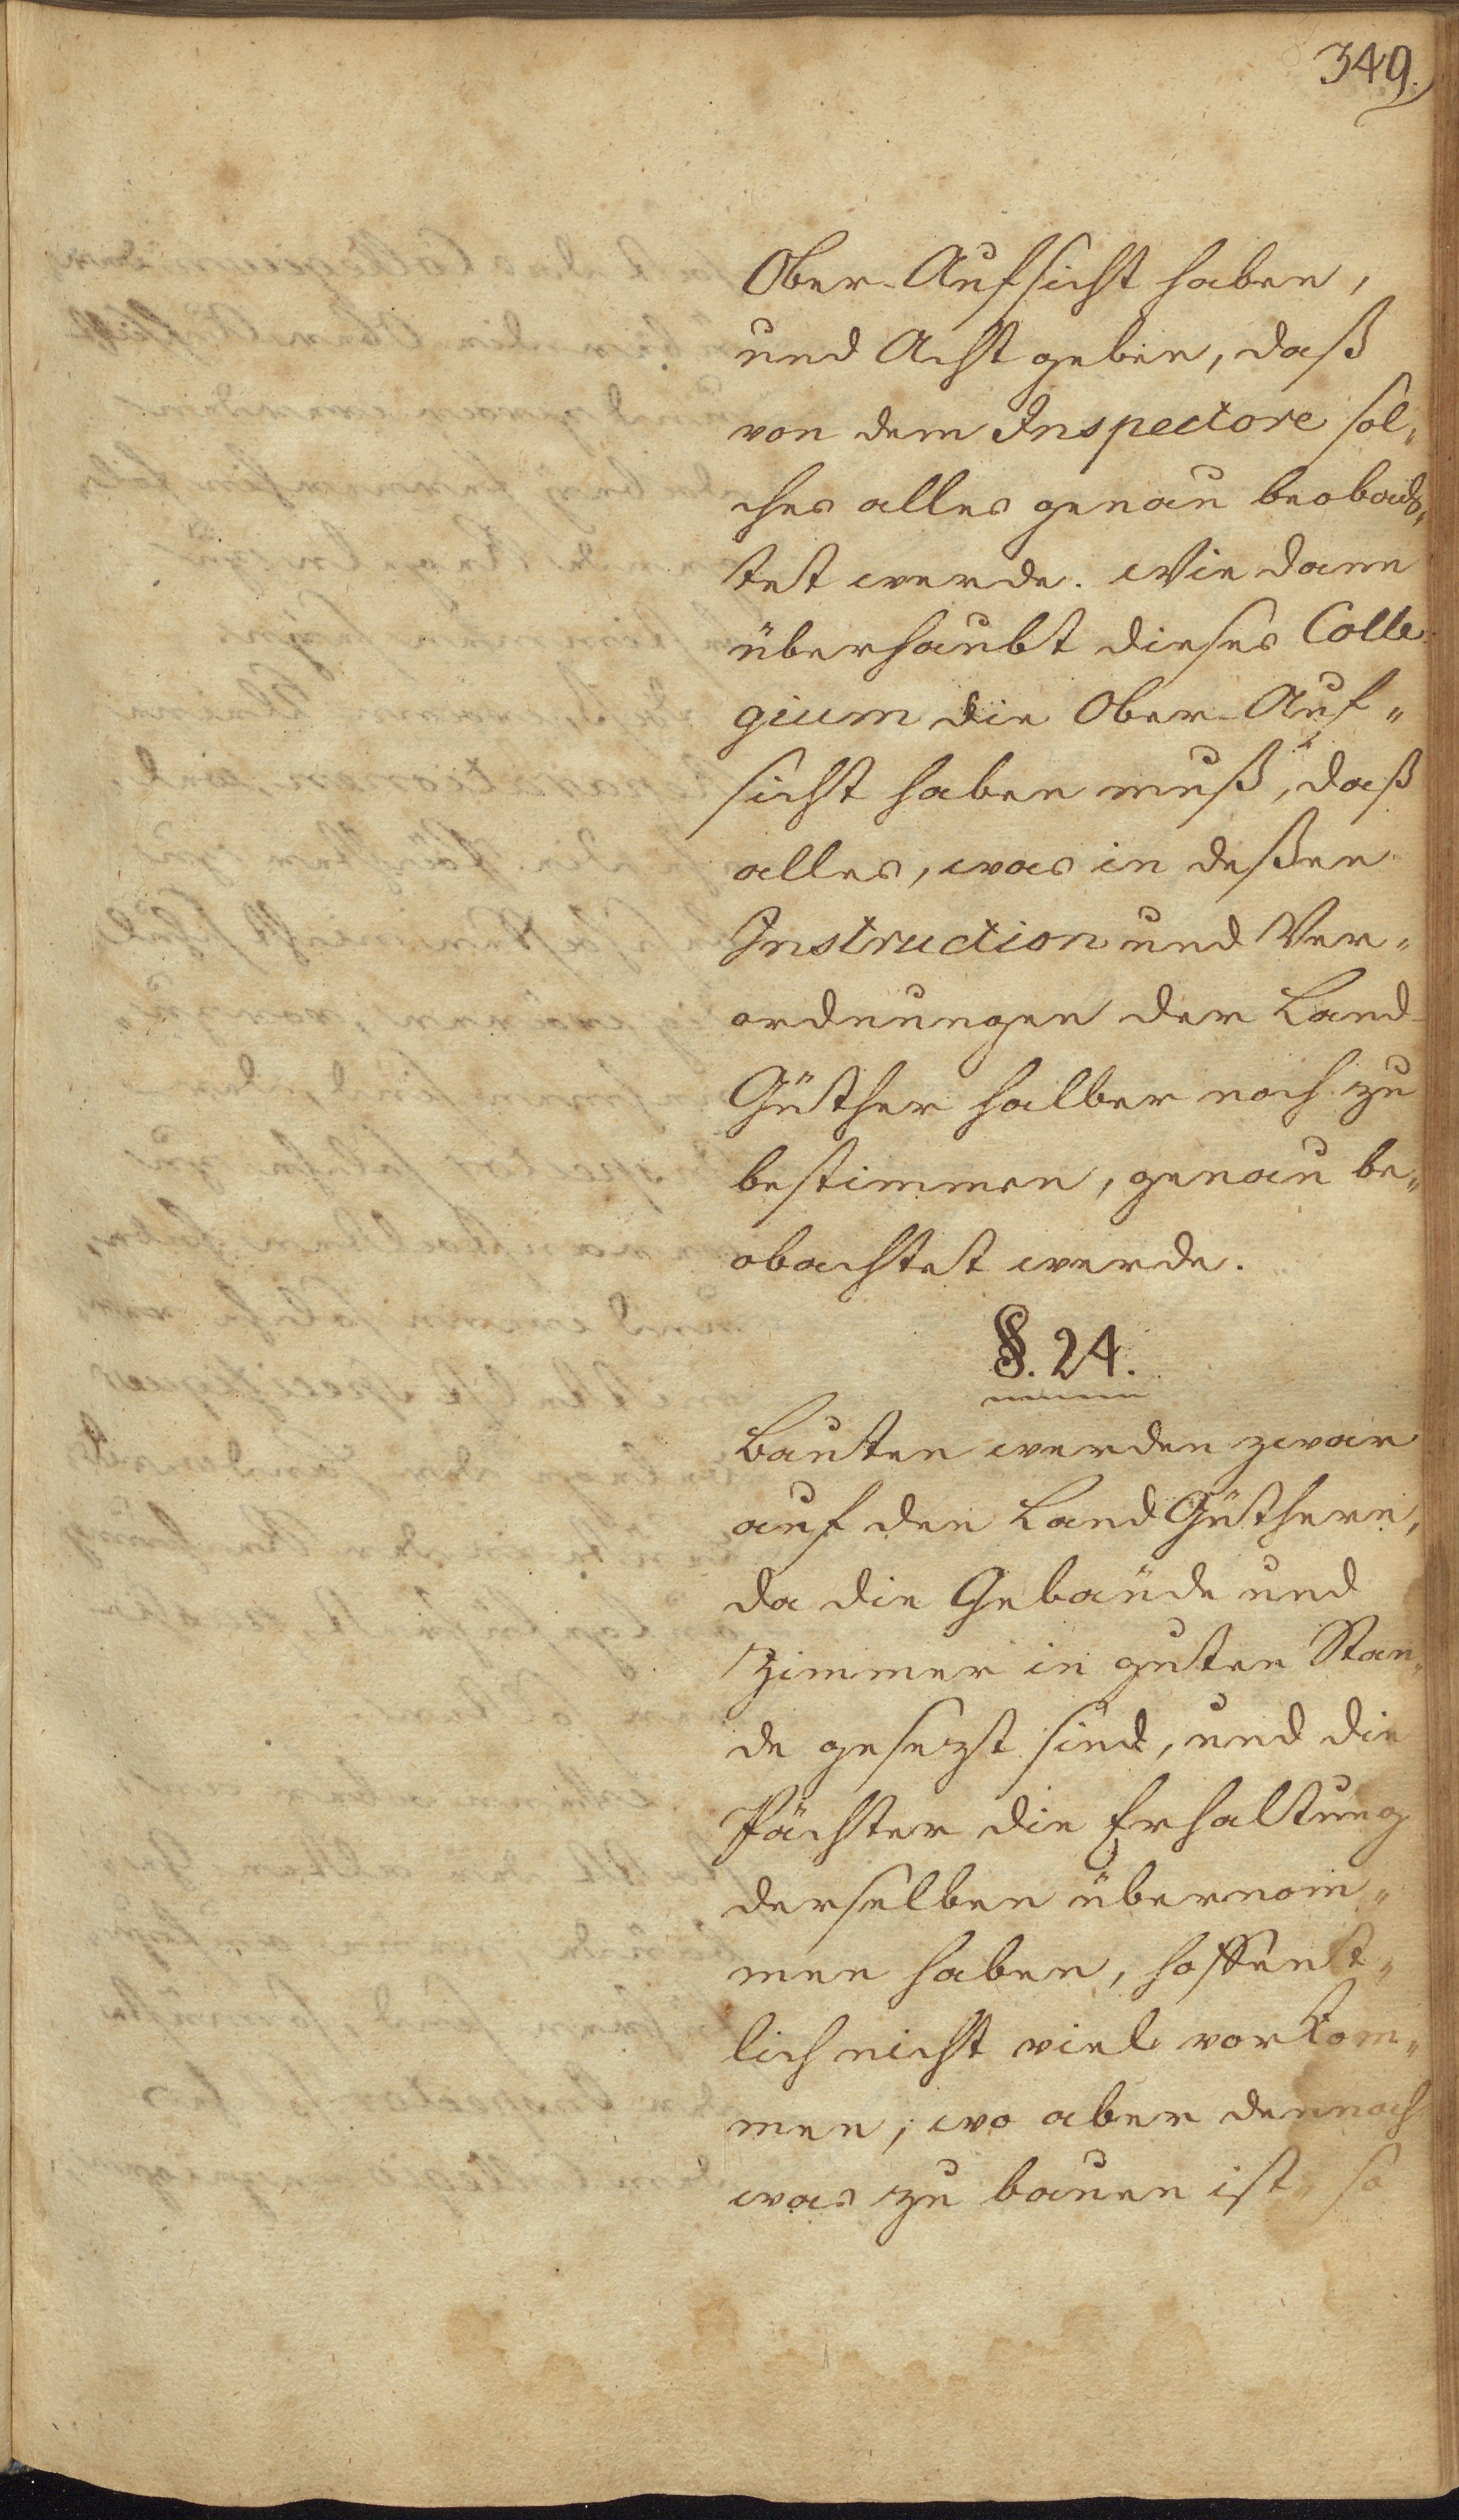 349.
Ober-Aufsicht haben,
und Acht geben, daß
von dem Inspectore sol„
ches alles genau beobach„
tet werde. Wie dann
überhaubt dieses Colle„
gium die Ober-Auf„
sicht haben muß, daß
alles, was in deßen
Instruction und Ver„
ordnungen der Land-
Güther halber noch zu
bestimmen, genau be„
obachtet werde.
§. 24.
Bauten werden zwar
auf den Land Güthern,
da die Gebäude und
Zimmer in guten Stan„
de gesezt sind, und die
Pächter die Erhaltung
derselben übernom„
men haben, hoffent„
lich nicht viel vorkom„
men; wo aber dennoch
was zu bauen ist, so